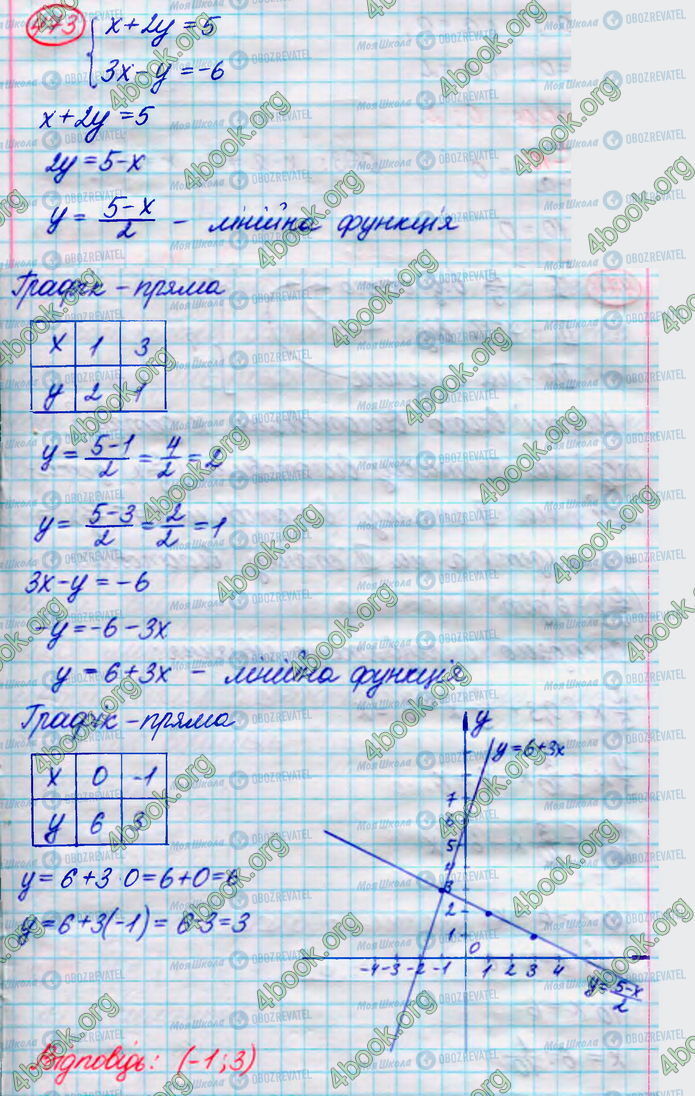 473
{ x+2y=5
3x-y=-6
x+2y=5
2y=5-x
y = (5-x)/2 - лінійна функція
Графік - пряма
x 1 3
y 2 1
y = (5-1)/2 = 4/2 = 2
y = (5-3)/2 = 2/2 = 1
3x-y=-6
-y=-6-3x
y=6+3x - лінійна функція
Графік - пряма
x 0 -1
y 6 3
y=6+3·0=6+0=6
y=6+3(-1)=6-3=3
y
y=6+3x
7
6
5
4
3
2
1
0
-4 -3 -2 -1 1 2 3 4
y=(5-x)/2
Відповідь: (-1; 3)
4book.org
Моя Школа OBOZREVATEL